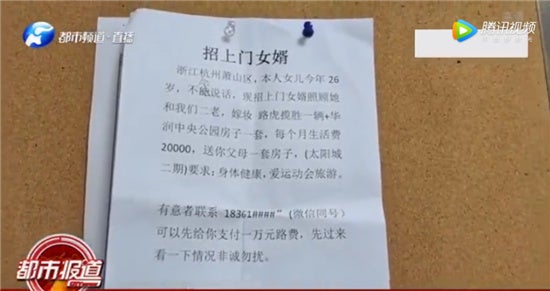 都市频道·直播
腾讯视频
招上门女婿
浙江杭州萧山区，本人女儿今年26
岁，不能说话，现招上门女婿照顾她
和我们二老，嫁妆 路虎揽胜一辆+华
润中央公园房子一套，每个月生活费
20000，送你父母一套房子，(太阳城
二期)要求：身体健康，爱运动会旅游。
有意者联系 18361####"（微信同号）
可以先给你支付一万元路费，先过来
看一下情况非诚勿扰。
都市报道